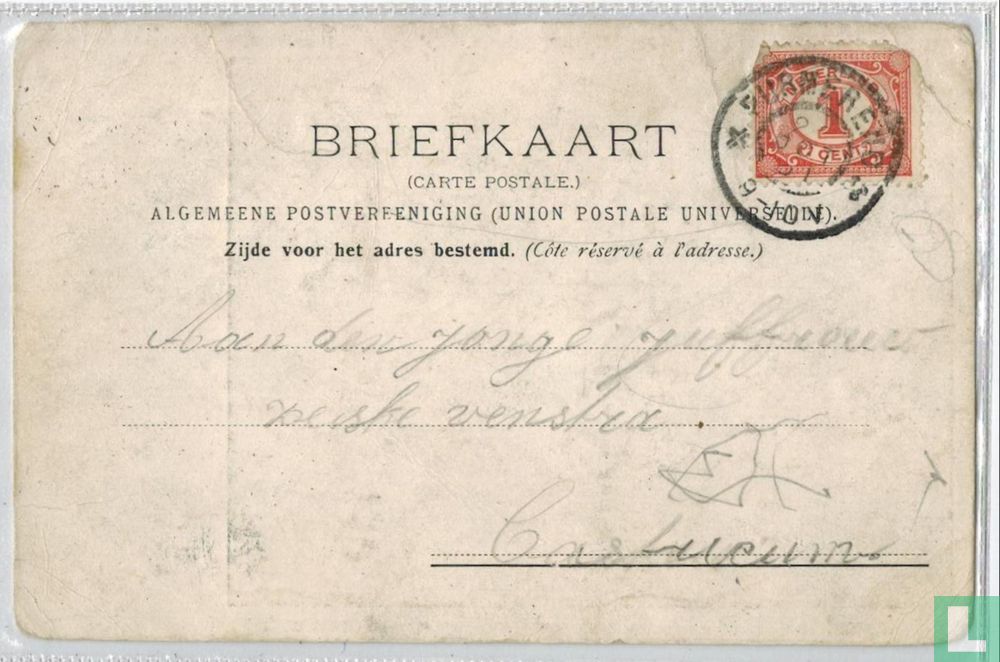 NEDERLAND
1
CENT
9-10V
BRIEFKAART
(CARTE POSTALE.)
ALGEMEENE POSTVEREENIGING (UNION POSTALE UNIVERSELLE).
Zijde voor het adres bestemd. (Côte réservé à l'adresse.)
Aan den jonge juffrouw
venstra
Castricum
L